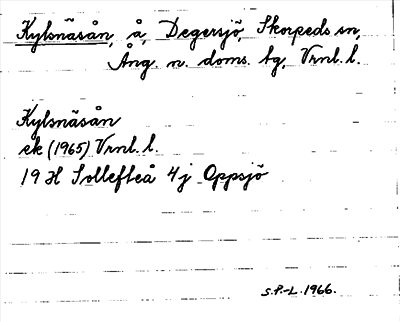 Kylsnäsån, å, Degersjö, Skorpeds sn,
Ång. n. doms. tg, Vrnl. l.
Kylsnäsån
ek (1965) Vrnl. l.
19 H Sollefteå 4j Oppsjö
S.P.-L. 1966.